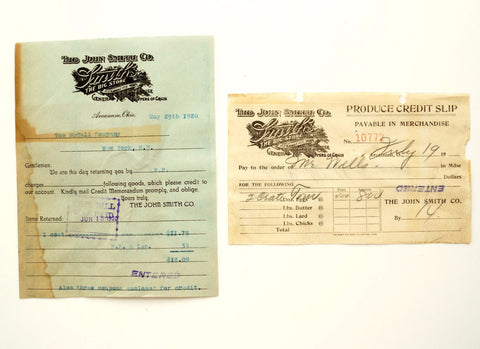 THE JOHN SMITH CO.
Smith's
THE BIG STORE
Arcanum, Ohio.
May 25th 1920
The McCall Company
New York, N.Y.
Gentlemen:
We are this day returning you by P.P.
charges following goods, which please credit to
our account. Kindly mail Credit Memorandum prompty, and oblige.
Yours truly,
THE JOHN SMITH CO.
JUN 1 1920
Items Returned
1 coat $11.75
P.P. & Ins.
$12.09
ENTERED
Also three coupons enclosed for credit.
THE JOHN SMITH CO.
Smith's
PRODUCE CREDIT SLIP
PAYABLE IN MERCHANDISE
10772
July 19
Pay to the order of Mr Mills in Mdse
Dollars
FOR THE FOLLOWING
PRICE
ENTERED
Lbs. Butter
Lbs. Lard
Lbs. Chicks
Total
THE JOHN SMITH CO.
By